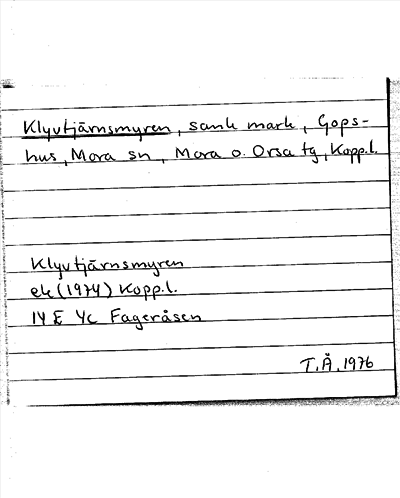 Klyvtjärnsmyren, sank mark, Gops-
hus, Mora sn, Mora o. Orsa tg, Kopp.l.
Klyvtjärnsmyren
ek (1974) Kopp.l.
14 E 4c Fageråsen
T.Å. 1976